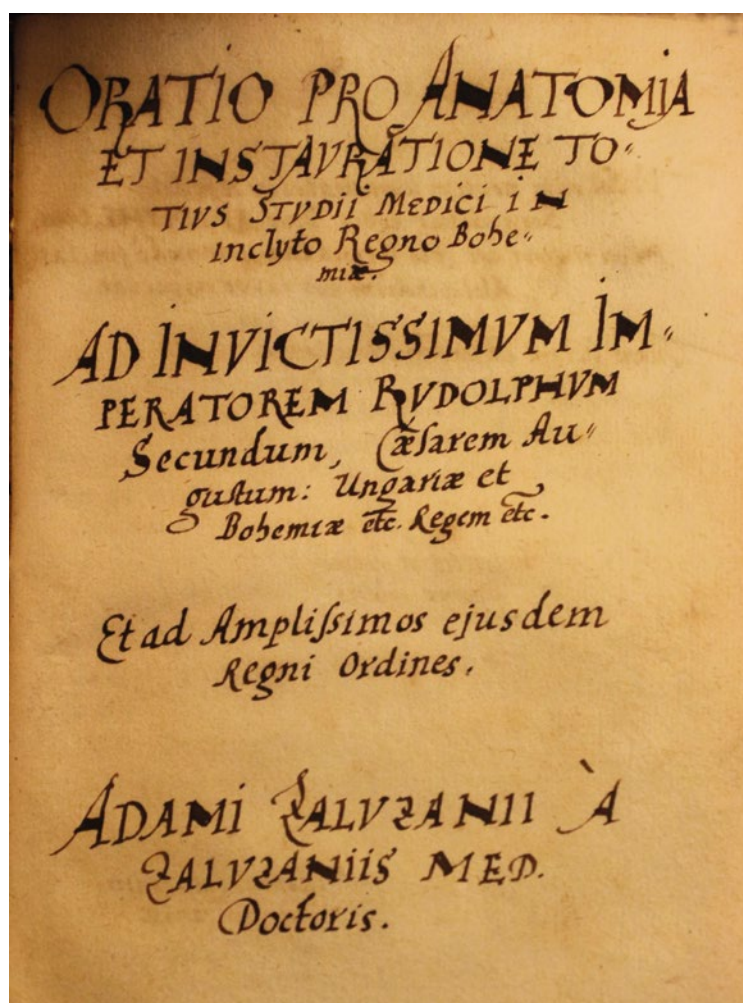 ORATIO PRO ANATOMIA
ET INSTAVRATIONE TO=
TIVS STVDII MEDICI IN
inclyto Regno Bohe=
miæ.
AD INVICTISSIMVM IM=
PERATOREM RVDOLPHVM
Secundum, Cæſarem Au=
guſtum: Ungariæ et
Bohemiæ etc. Regem etc.
Et ad Ampliſsimos ejusdem
Regni Ordines.
ADAMI ZALVZANII À
ZALVZANIIS MED.
Doctoris.